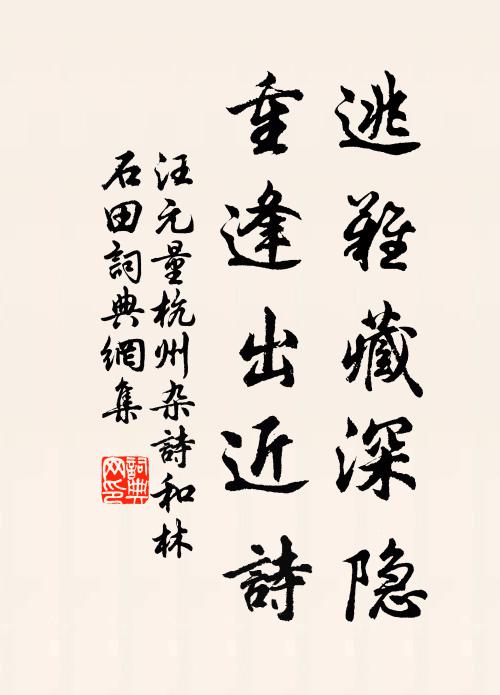 逃难藏深隐
重逢出近詩
汪元量杭州杂詩和林
石田詞典網集
詞典网印